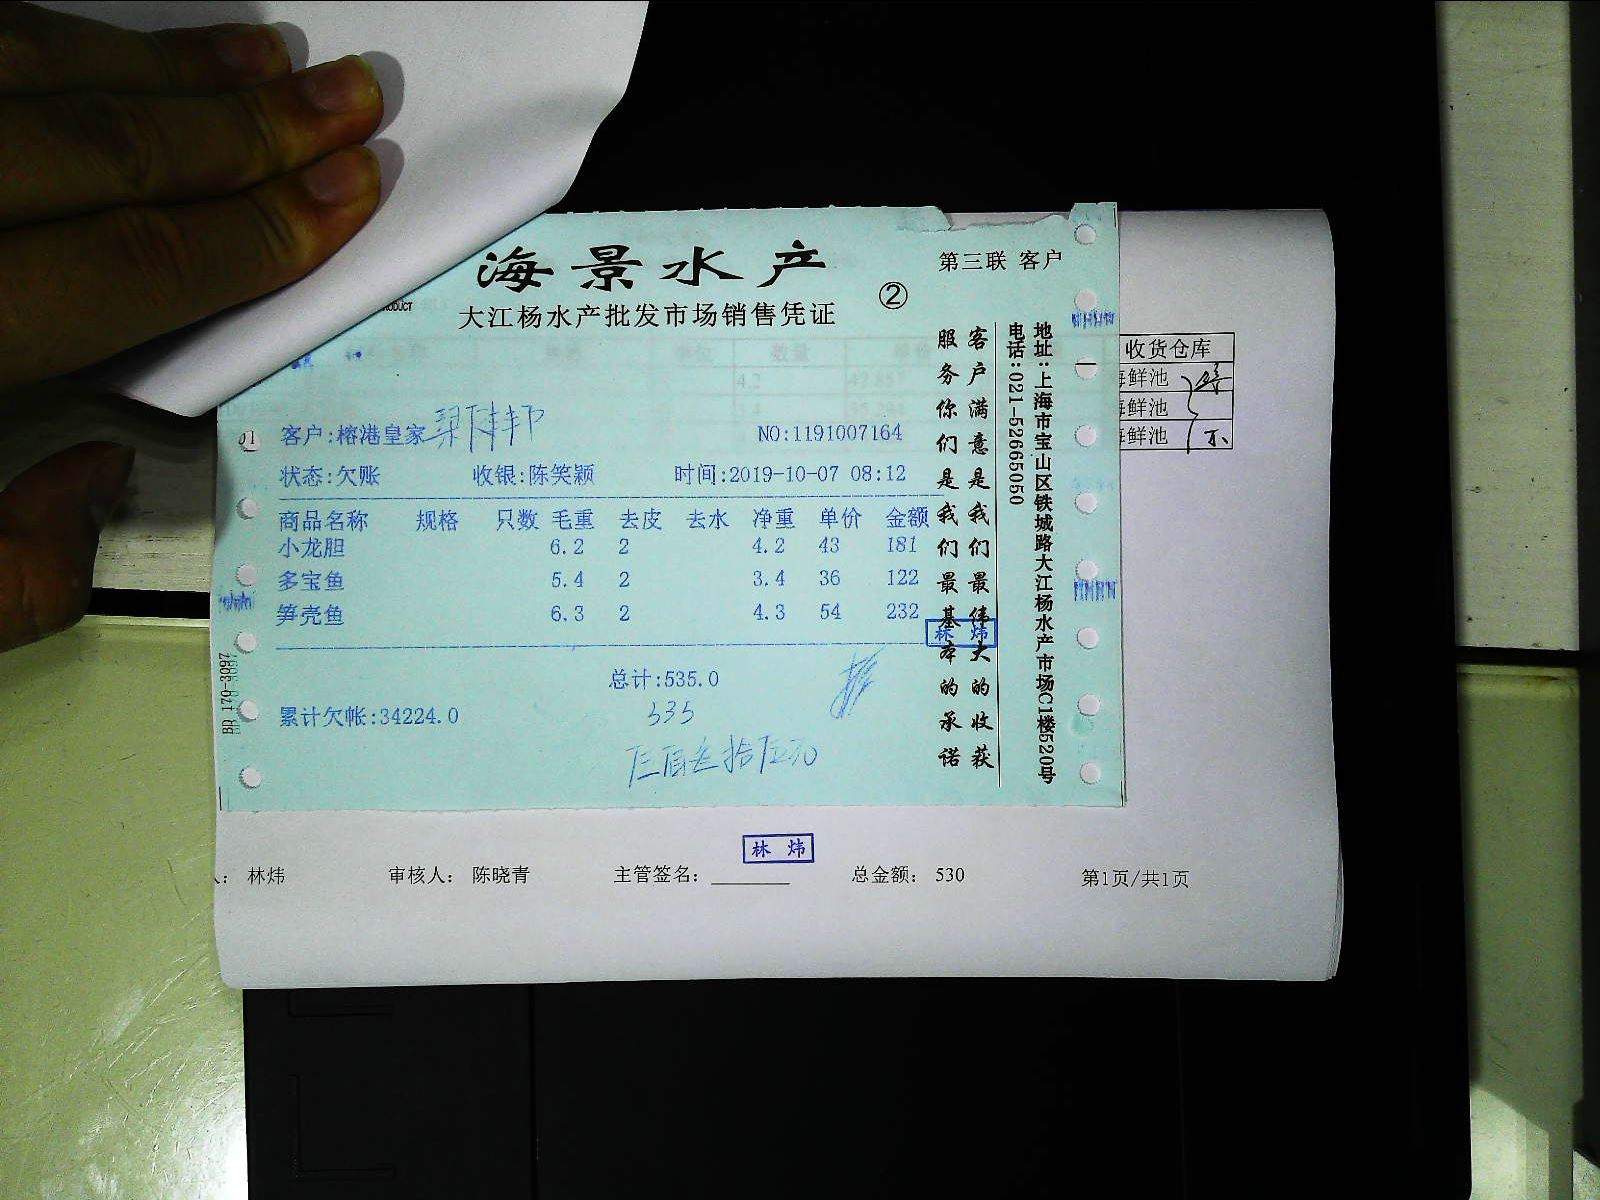 海景水产
第三联 客户
②
大江杨水产批发市场销售凭证
客户满意是我们最伟大的收获
服务你们是我们最基本的承诺
地址:上海市宝山区铁城路大江杨水产市场C1楼520号
电话:021-52665050
01 客户:榕港皇家 NO:1191007164
状态:欠账 收银:陈笑颖 时间:2019-10-07 08:12
商品名称 规格 只数 毛重 去皮 去水 净重 单价 金额
小龙胆 6.2 2 4.2 43 181
多宝鱼 5.4 2 3.4 36 122
笋壳鱼 6.3 2 4.3 54 232
林 炜
总计:535.0
累计欠帐:34224.0
535
伍佰叁拾伍元
BR 170-3097
收货仓库
海鲜池
海鲜池
海鲜池
林 炜
林炜 审核人: 陈晓青 主管签名: 总金额: 530 第1页/共1页